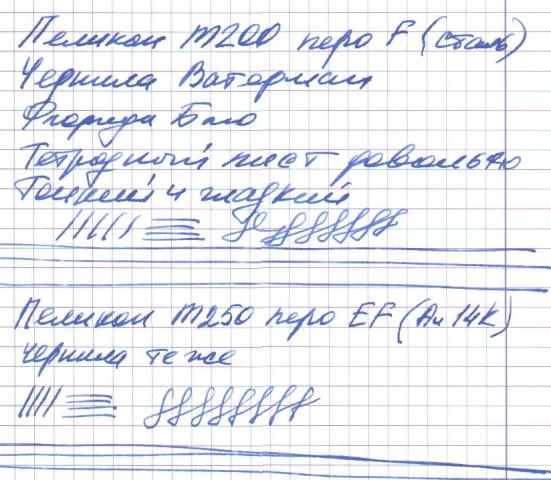 Пеликан M200 перо F (сталь)
Чернила Ватерман
Флорида Блю
Тетрадный лист довольно
Тонкий и гладкий
Пеликан M250 перо EF (Au 14K)
чернила те же